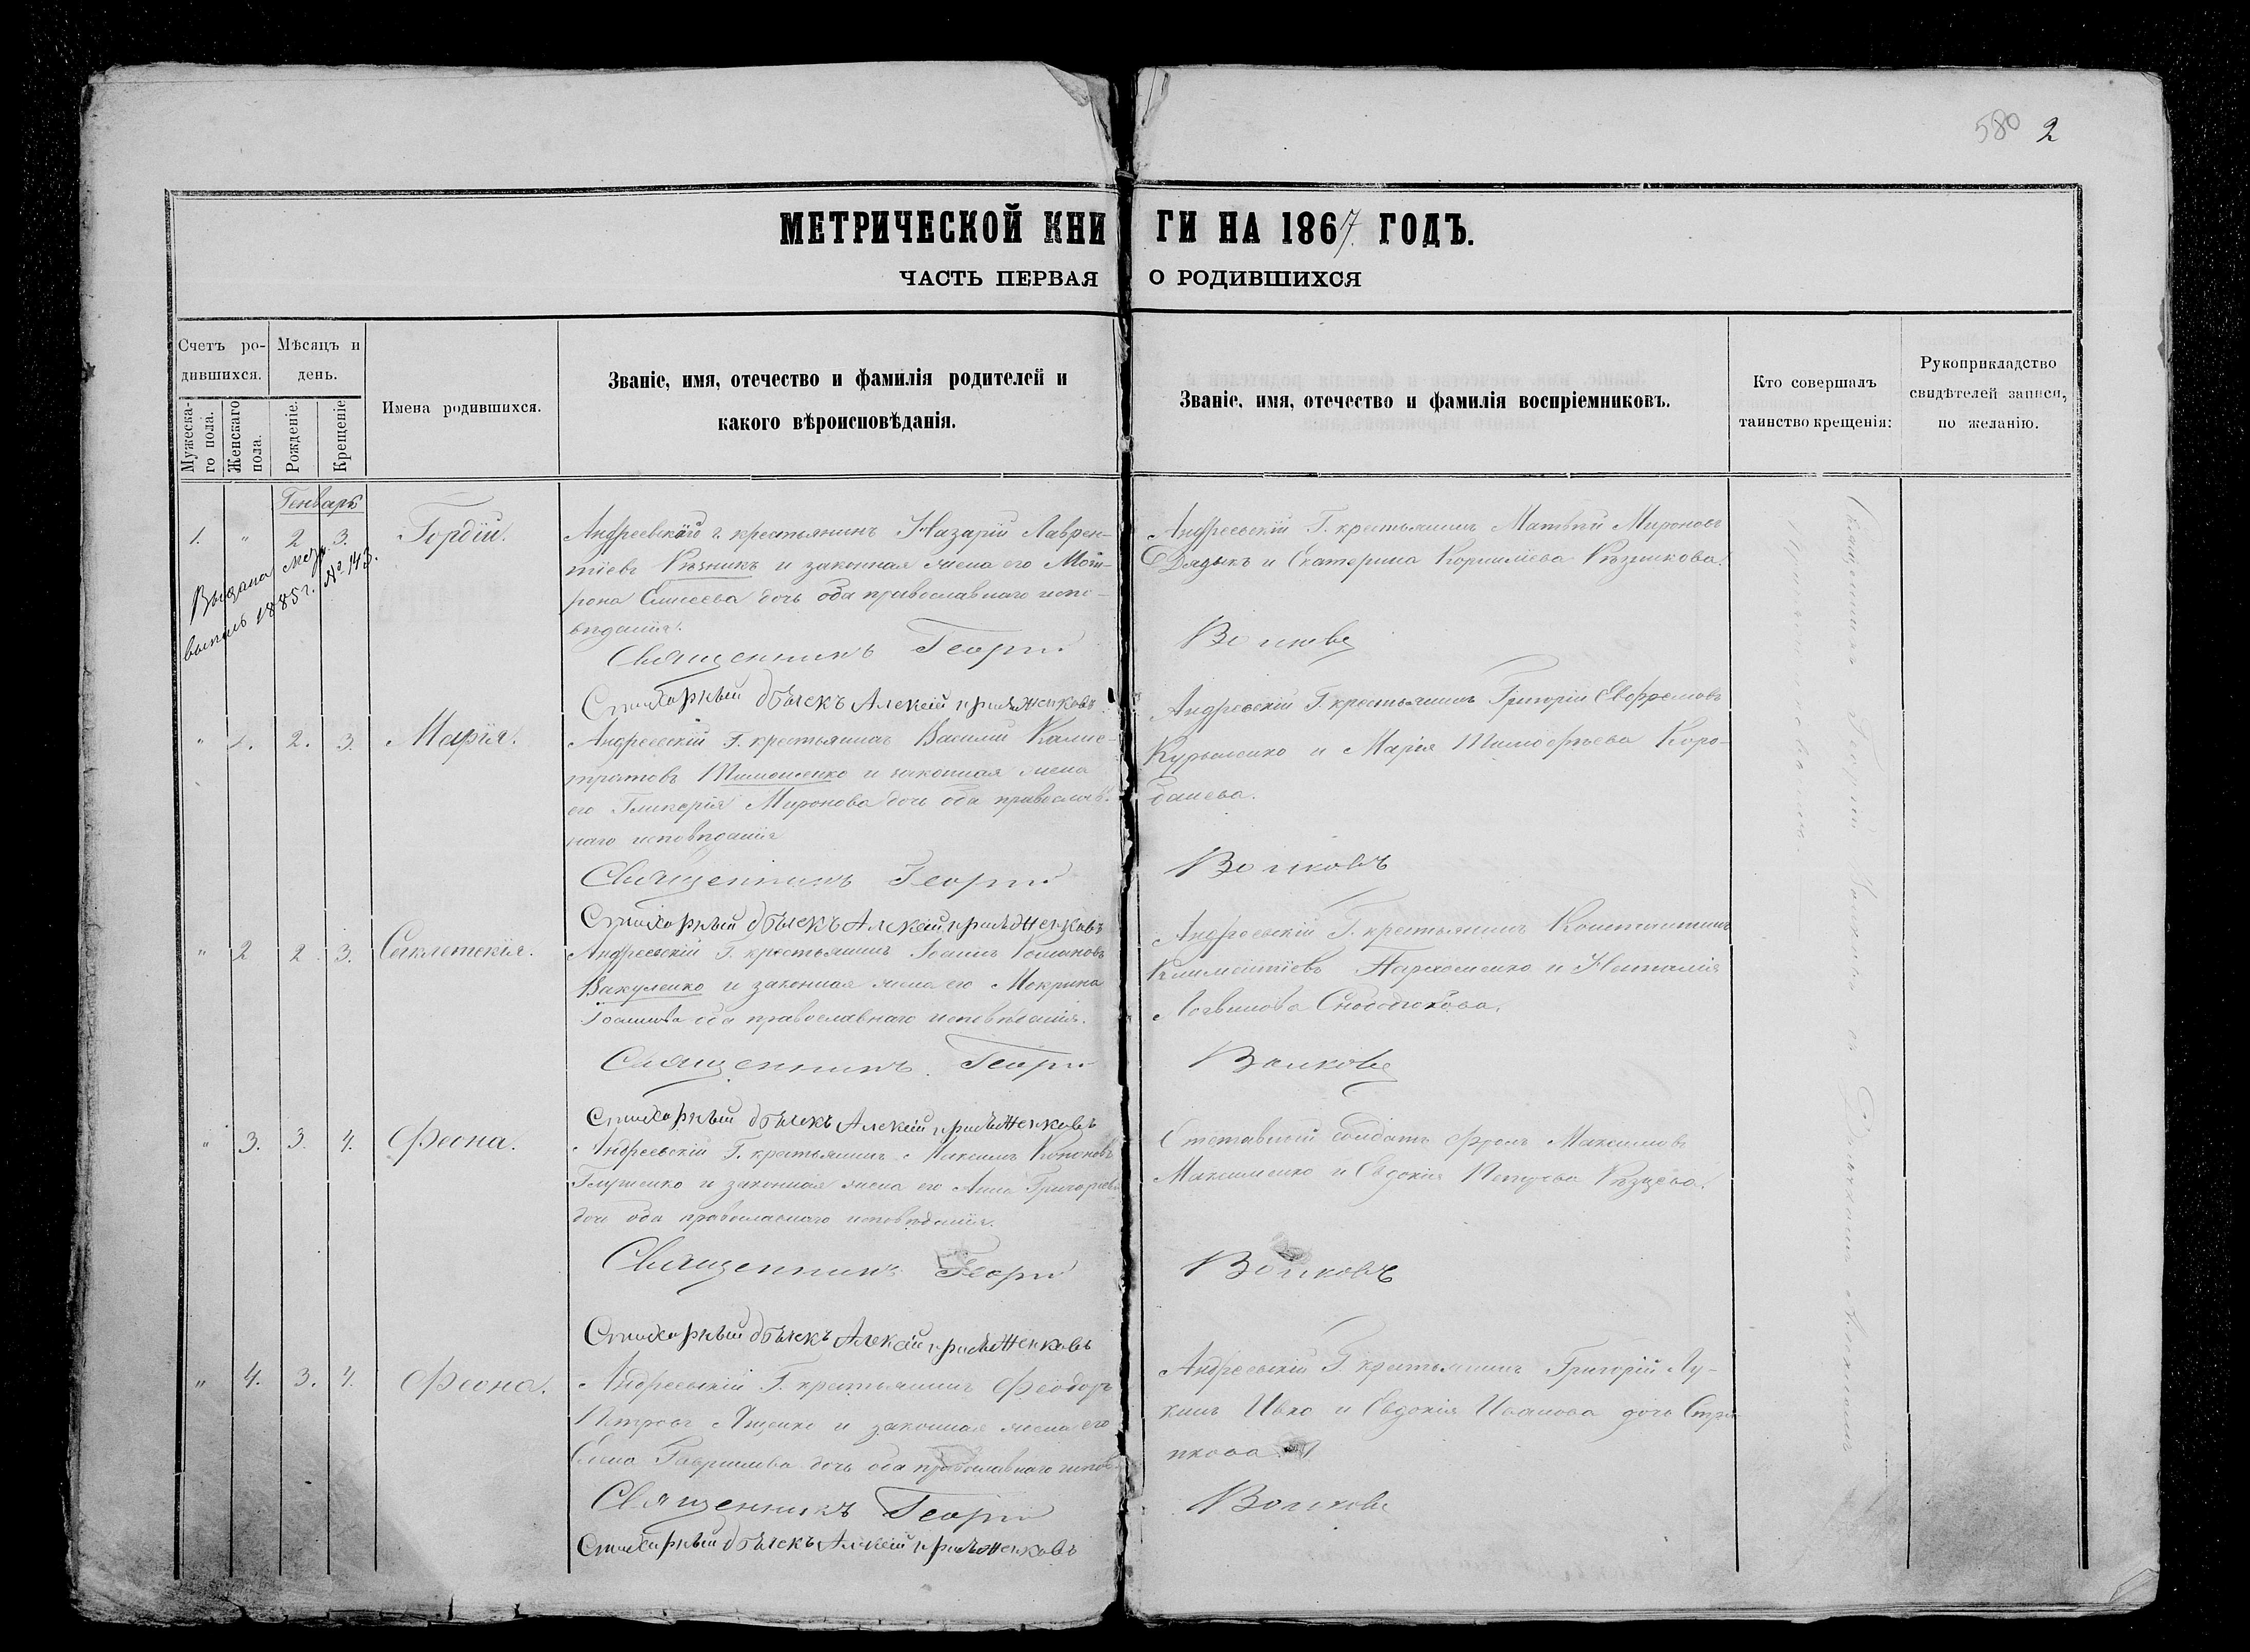 580 2
МЕТРИЧЕСКОЙ КНИГИ НА 1867 ГОДЪ.
ЧАСТЬ ПЕРВАЯ О РОДИВШИХСЯ
Счетъ родившихся.
Мужескаго пола.
Женскаго пола.
Мѣсяцъ и день.
Рожденіе.
Крещеніе
Имена родившихся.
Званіе, имя, отечество и фамилія родителей и
какого вѣроисповѣданія.
Званіе, имя, отечество и фамилія воспріемниковъ.
Кто совершалъ
таинство крещенія:
Рукоприкладство
свидѣтелей записи,
по желанію.
Генварь
1. " 2 3. Гордій.
Выдана метр.
выпись 1885 г. № 143.
Андреевскаго г. крестьянинъ Назарій Лаврен-
тіевъ Рѣзникъ и законная жена его Мот-
рона Елисеева дочь оба православнаго испо-
вѣданія.
Священникъ Георгій
Стихарный дьячекъ Алексій
Андреевскій Г. крестьянинъ Матвѣй Мироновъ
Дядыкъ и Екатерина Корнилиева Рѣзникова.
Волковъ
" 1. 2. 3. Марія.
Андреевскій Г. крестьянинъ Василій Калис-
тратовъ Тимошенко и законная жена
его Гликерія Миронова дочь оба православ-
наго исповѣданія
Священникъ Георгій
Стихарный дьячекъ Алексій
Андреевскій Г. крестьянинъ Григорій Евфремовъ
Курыленко и Марія Тимофѣева Коро-
баева.
Волковъ
" 2 2. 3. Сѵклетикія.
Андреевскій Г. крестьянинъ Іоаннъ Романовъ
Вакуленко и законная жена его Мокрина
Іоаннова оба православнаго исповѣданія.
Священникъ Георгій
Стихарный дьячекъ Алексій
Андреевскій Г. крестьянинъ Константинъ
Климентіевъ Пархоменко и Наталія
Логвинова
Волковъ
" 3. 3. 4. Феона.
Андреевскій Г. крестьянинъ Максимъ Кононовъ
Глушенко и законная жена его Анна Григорьева
дочь оба православнаго исповѣданія.
Священникъ Георгій
Стихарный дьячекъ Алексій
Отставный солдатъ Фролъ Максимовъ
Максименко и Евдокія Петрова
Волковъ
" 4. 3. 4. Феона.
Андреевскій Г. крестьянинъ Феодоръ
Петровъ Яценко и законная жена его
Елена Гаврилова дочь оба православнаго испов.
Священникъ Георгій
Стихарный дьячекъ Алексій
Андреевскій Г. крестьянинъ Григорій Лу-
кинъ Ивко и Евдокія Иванова дочь
Волковъ